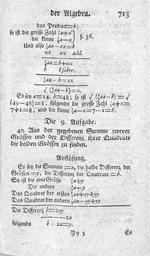 der Algebra. 713
das Product=b;
so ist die große Zahl
die kleine
Und also ¼aa−xx=b
xx xx add.
¼aa=b+xx
b b subtr.
¼aa−b=xx
√(¼aa−b)=x.
Es sey a=14, b=48; so ist √(¼aa−b)=√
(49−48)=1, folgends die große Zahl ½a+x=
7+1=8, und die kleine ½a−x=7−1=6.
Die 9. Aufgabe.
40. Aus der gegebenen Summe zweyer
Größen und der Differenz ihrer Quadrate
die beiden Größen zu finden.
Auflösung.
Es sey die Summe=a, die halbe Differenz der
Größen=y, die Differenz der Quadrate=b.
So ist die eine Größe
Die andere
Das Quadrat der ersten ¼aa+ay+yy
Das Quadrat der andern ¼aa−ay+yy
Die Differenz b=2ay
folgends
Es